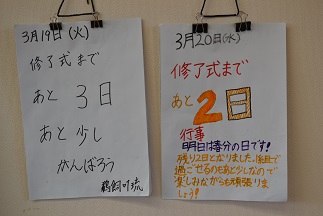 3月19日(火)
修了式まで
あと3日
あと少し
がんばろう
3月20日(水)
修了式まで
あと2日
行事
明日は春分の日です!
残り2日となりました!組で
過ごせるのもあと少しなので
楽しみながらも頑張りま
しょう!